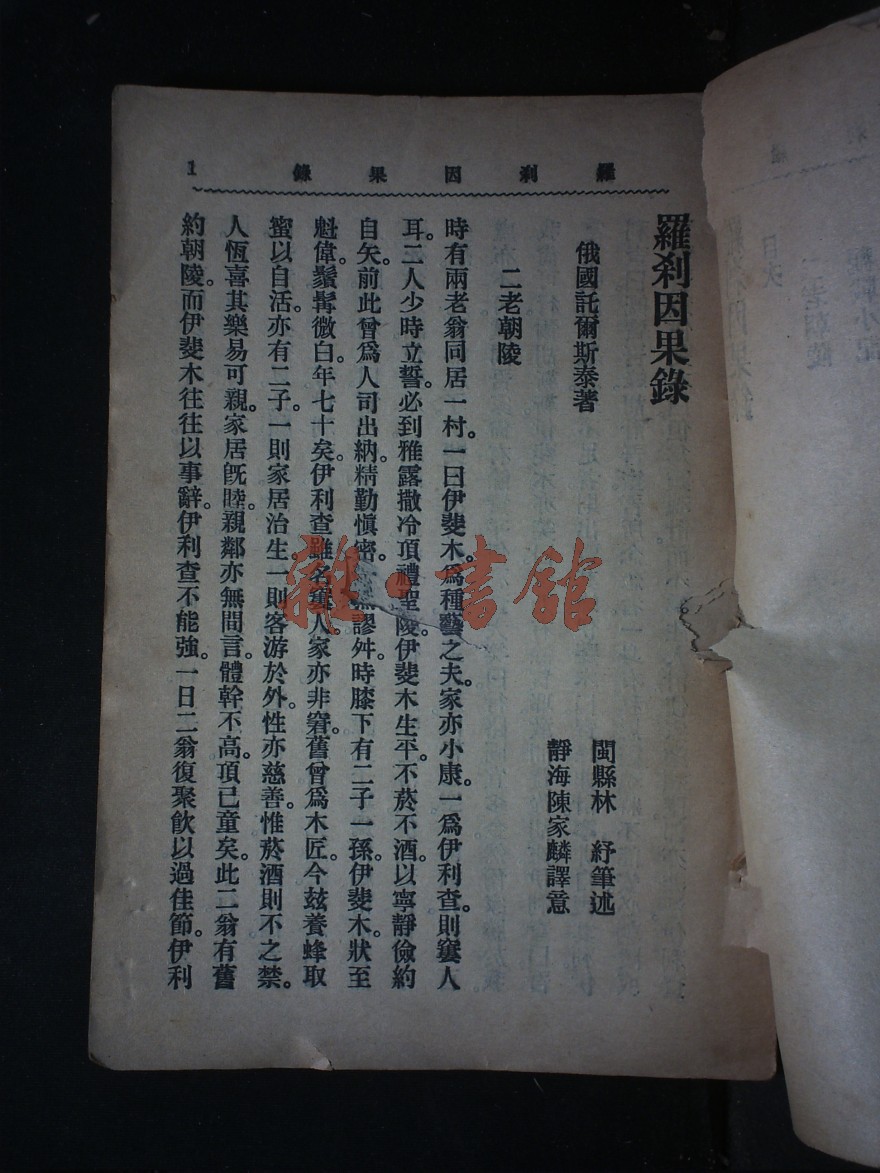 羅刹因果錄 1
羅刹因果錄
俄國託爾斯泰著
閩縣林 紓筆述
靜海陳家麟譯意
二老朝陵
時有兩老翁同居一村。一曰伊斐木。爲種藝之夫。家亦小康。一爲伊利查。則窶人
耳。二人少時立誓。必到雅露撒冷頂禮聖陵。伊斐木生平不菸不酒。以寧靜儉約
自矢。前此曾爲人司出納。精勤愼密。無謬舛。時膝下有二子一孫。伊斐木。狀至
魁偉。鬚髯微白。年七十矣。伊利查雖名窶人。家亦非窘。舊曾爲木匠。今玆養蜂取
蜜以自活。亦有二子。一則家居治生。一則客游於外。性亦慈善。惟菸酒則不之禁。
人恆喜其樂易可親。家居旣睦。親鄰亦無間言。體幹不高。頂已童矣。此二翁有舊
約朝陵。而伊斐木往往以事辭。伊利查不能強。一日二翁復聚飮以過佳節。伊利
雜·書館